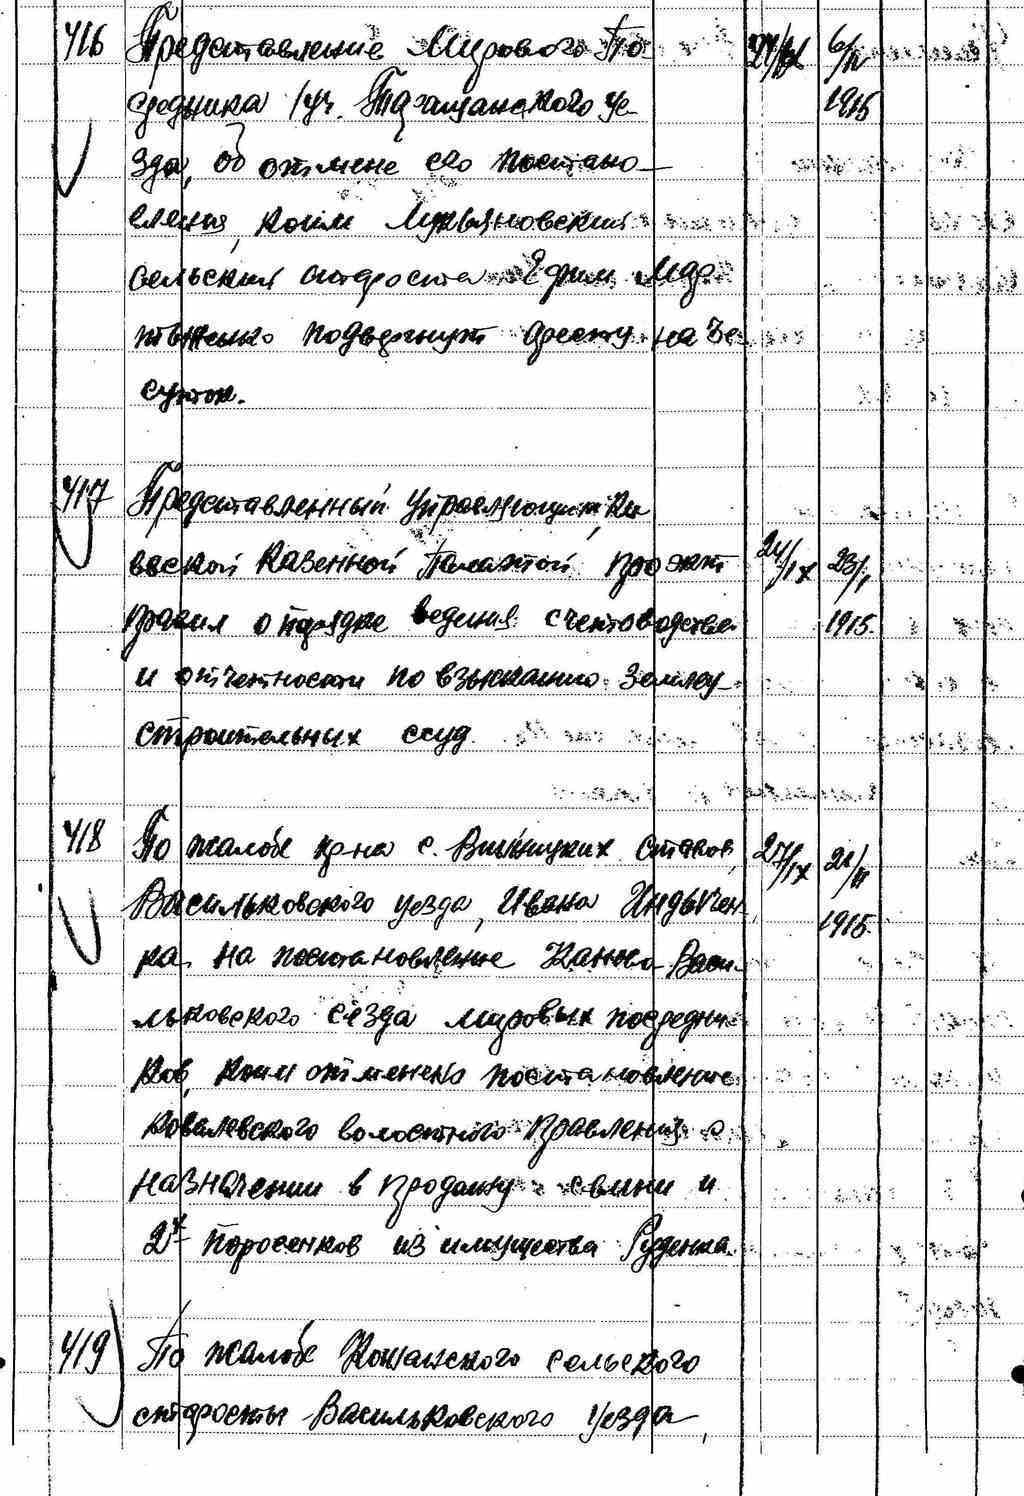 416 Представление Мирового По-
средника 1 уч. Таращанского уе-
зда, об отмене его постано-
вления, коим Лукьяновский
сельский староста Ефим Мар-
подвергнут аресту на 3е
суток.
417 Представленный Управляющим Ки-
евской Казенной Палатой проэкт
правил о порядке ведения счетоводства
и отчетности по взысканию Землеу-
строительных ссуд.
24/IX 23/I
1915.
418 По жалобе кр-на с. Винницких Ставов,
Васильковского уезда, Ивана Индычен-
ка на постановление Канево-Васи-
льковского съезда мировых посредни-
ков, коим отменено постановление
Ковалевского волостного Правления о
назначении в продажу свиньи и
2х поросенков из имущества Руденка.
27/IX
1915.
419 По жалобе Кошанского сельского
старосты Васильковского Уезда,
6/II
1915